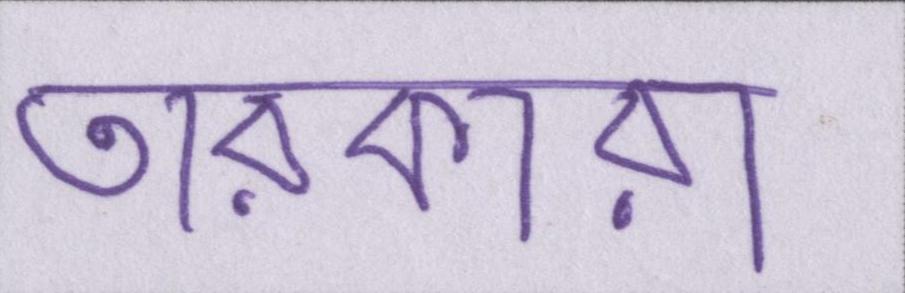 তারকারা